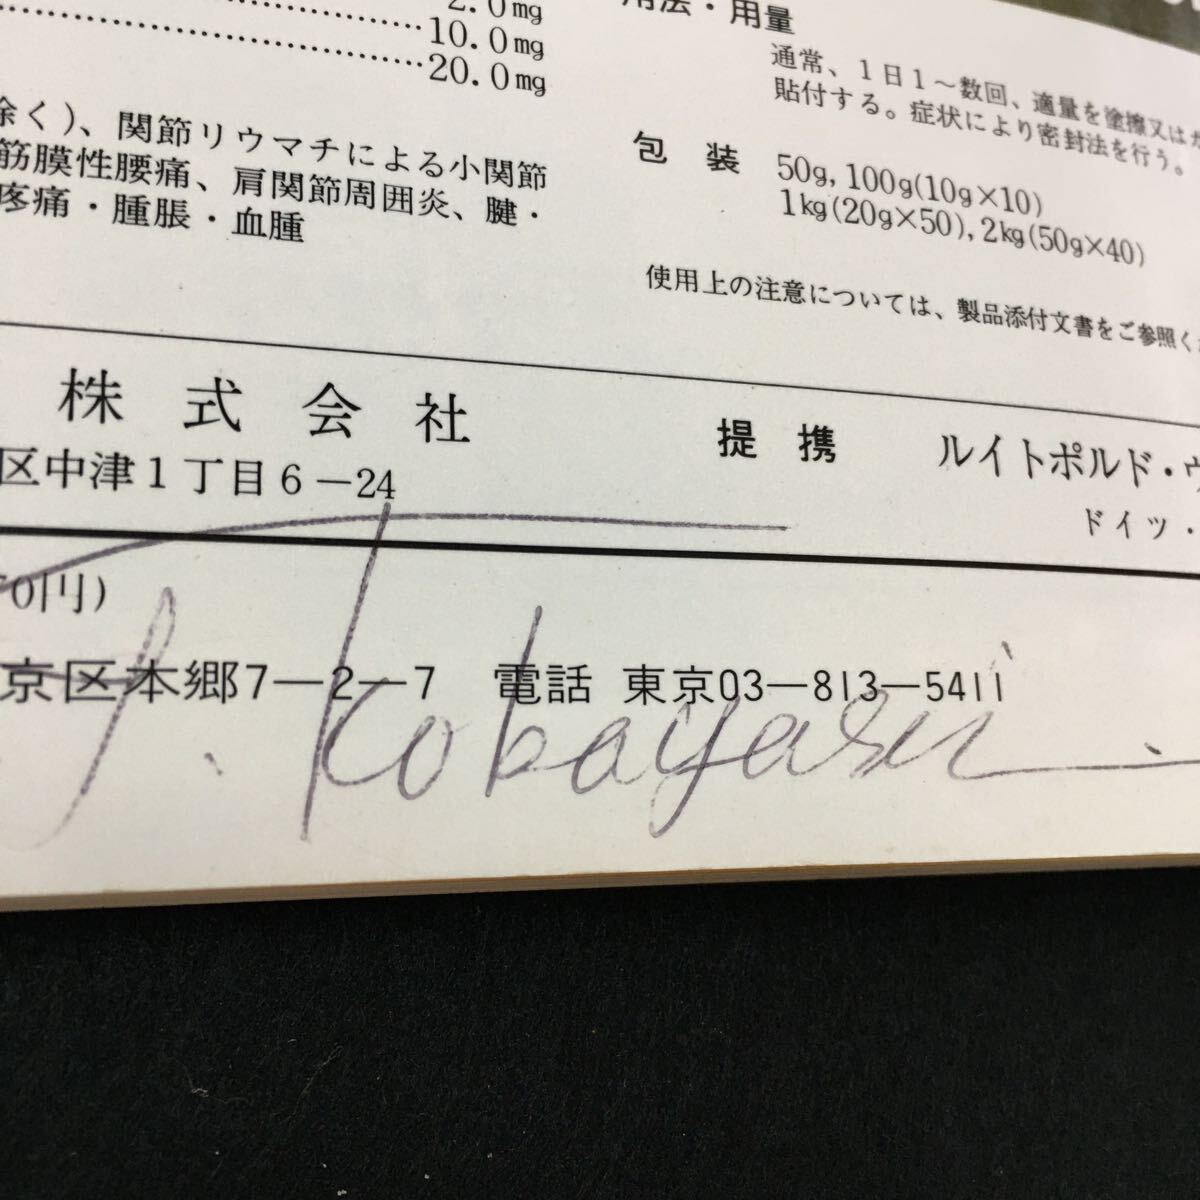 2.0mg
10.0mg
20.0mg
除く)、関節リウマチによる小関節
筋膜性腰痛、肩関節周囲炎、腱・
疼痛・腫脹・血腫
用法・用量
通常、1日1~数回、適量を塗擦又はガ
貼付する。症状により密封法を行う。
包装
50g, 100g(10g×10)
1kg(20g×50), 2kg(50g×40)
使用上の注意については、製品添付文書をご参照く
株式会社
区中津1丁目6-24
提携
ルイトポルド・ヴ
ドイツ・
0円)
京区本郷7-2-7 電話 東京03-813-5411
Kobayasi